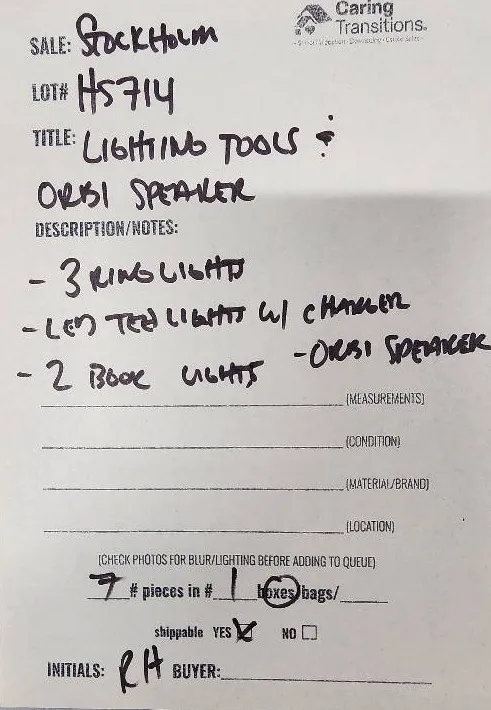 Caring
Transitions.
SALE: STOCKHOLM
LOT# HS714
TITLE: LIGHTING TOOLS &
ORBI SPEAKER
DESCRIPTION/NOTES:
- 3 RING LIGHTS
- LED LIGHTS W/ CHARGER
- 2 BOOK LIGHTS - ORBI SPEAKER
(MEASUREMENTS)
(CONDITION)
(MATERIAL/BRAND)
(LOCATION)
(CHECK PHOTOS FOR BLUR/LIGHTING BEFORE ADDING TO QUEUE)
7 # pieces in # 1 boxes/bags/
shippable YES NO
INITIALS: RH BUYER: